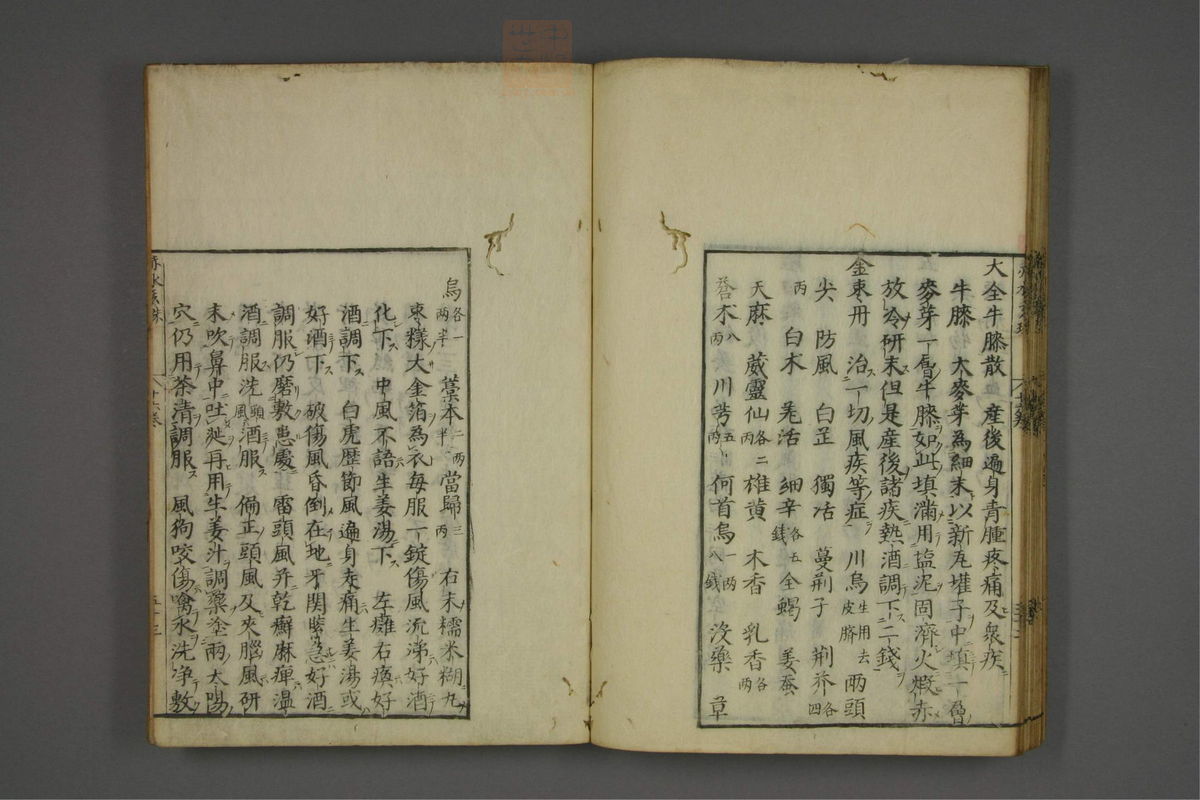 大全牛膝散 產後遍身青腫疼痛及衆疾
牛膝 大麥芽為細末以新瓦堆子中填一層
麥芽一層牛膝如此填滿用塩泥固濟火煆赤
放冷研末但是產後諸疾熱酒調下二錢
金枣丹 治一切風疾等症 川烏生用去皮臍 兩頭
尖 防風 白芷 獨活 蔓荆子 荆芥各四
丙 白木 羌活 細辛各五錢 全蝎 姜蚕
天麻 葳靈仙各二丙 雄黄 木香 乳香各丙
蒼木八丙 川芎五丙 何首烏一兩八錢 没藥 草
烏各一兩半 藁本二兩半 當歸三丙 右末糯米糊丸
枣樣大金箔為衣每服一錠傷風流涕好酒
化下 中風不語生姜湯下 左癱右瘓好
酒調下 白虎歷節風遍身走痛生姜湯或
好酒下 破傷風昏倒在地牙関緊急好酒
調服仍磨敷患處 雷頭風并乾癬麻痺温
酒調服洗頭風酒服 偏正頭風及夾腦風研
末吹鼻中吐涎再用生姜汁調藥塗兩太陽
穴仍用茶清調服 風狗咬傷噙水洗净敷